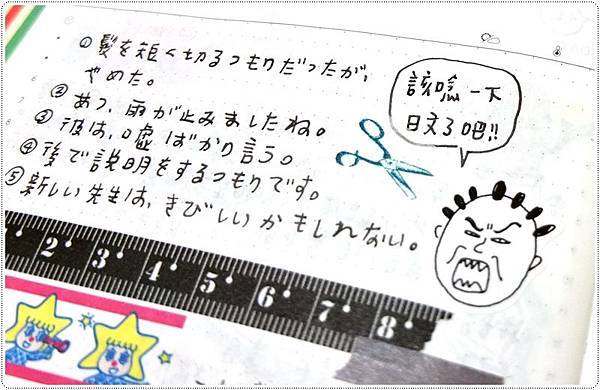 ①髮を短く切るつもりだったが、
やめた。
②あっ、雨が止みましたね。
③彼は、嘘ばかり言う。
④後で説明をするつもりです。
⑤新しい先生は、きびしいかもしれない。
該唸一下
日文了吧!!
2 3 4 5 6 7 8